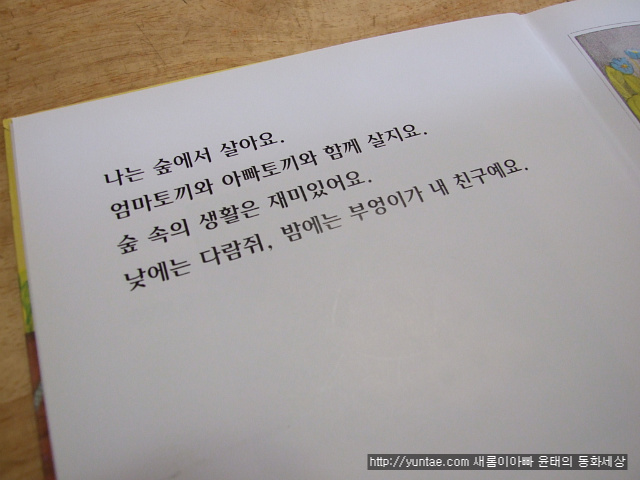 나는 숲에서 살아요.
엄마토끼와 아빠토끼와 함께 살지요.
숲 속의 생활은 재미있어요.
낮에는 다람쥐, 밤에는 부엉이가 내 친구예요.
http://yuntae.com 새롬이아빠 윤태의 동화세상